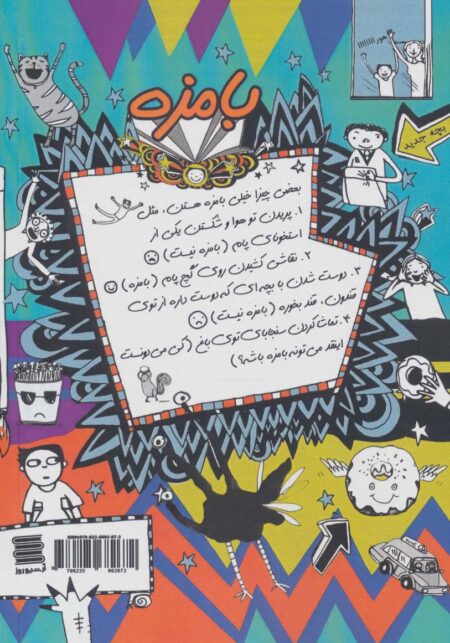 هورااااااا
بچه جدید
بامزه
بعضی چیزا خیلی بامزه هستن، مثل
۱. پریدن تو هوا و شکستن یکی از
استخونای پام (بامزه نیست)
۲. نقاشی کشیدن روی گچ پام (بامزه)
۳. دوست شدن با بچه‌ای که دوست داره از توی
قندون، قند بخوره (بامزه نیست)
۴. تماشا کردن سنجابای توی باغ (کی می‌دونست
اینقد می‌تونه بامزه باشه؟)